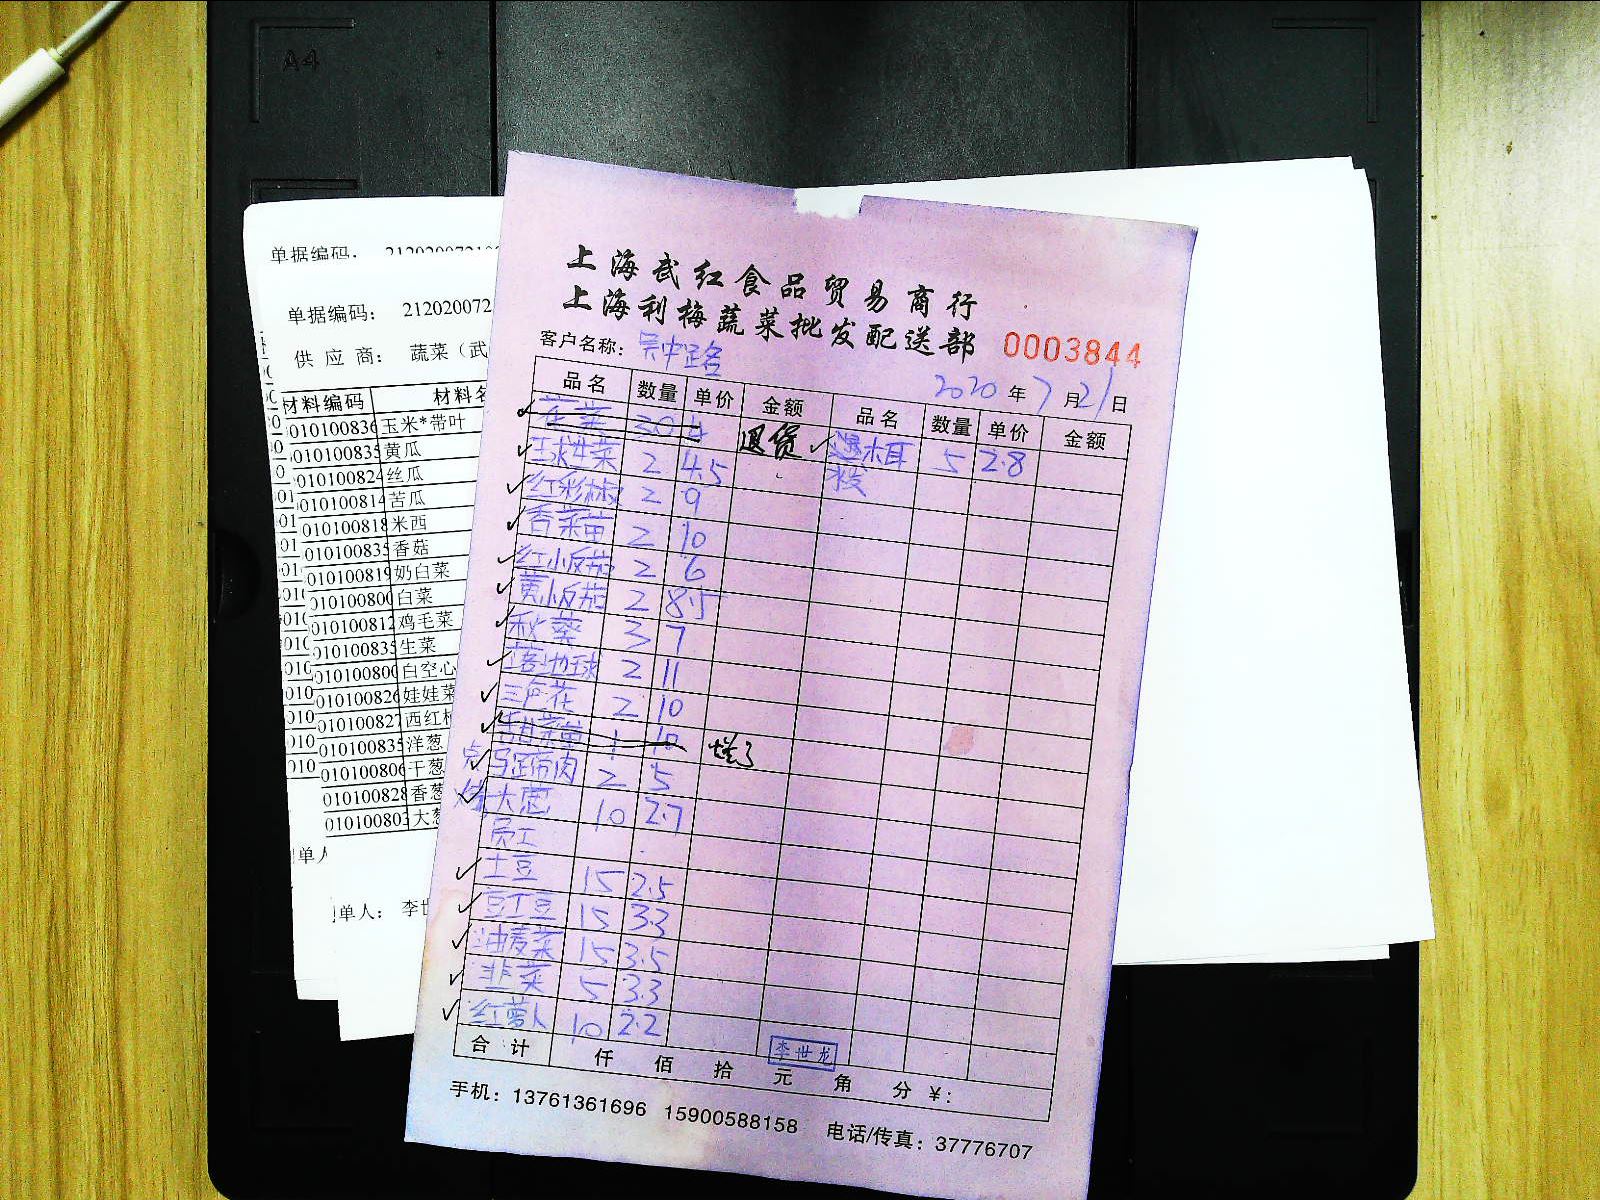 A4
单据编码：
单据编码： 212020072
供应商： 蔬菜（武
材料编码 材料名
010100836 玉米*带叶
010100835 黄瓜
010100824 丝瓜
010100814 苦瓜
010100818 米西
010100835 香菇
010100819 奶白菜
010100800 白菜
010100812 鸡毛菜
010100835 生菜
010100800 白空心
010100826 娃娃菜
010100827 西红柿
010100835 洋葱
010100806 干葱
010100828 香葱
010100803 大葱
单人
单人： 李世
上海武红食品贸易商行
上海利梅蔬菜批发配送部
0003844
客户名称： 吴中路
2020 年 7 月 21 日
品名 数量 单价 金额 品名 数量 单价 金额
花菜 30 4 退货 木耳 5 2.8
球生菜 2 4.5
红彩椒 2 9
香菜苗 2 10
红小番茄 2 6
黄小番茄 2 8.5
秋葵 3 7
落地球 2 11
三色花 2 10
甜菜苗 1 10
马蹄肉 2 5
大葱 10 2.7
员工
土豆 15 2.5
豇豆 15 3.3
油麦菜 15 3.5
韭菜 5 3.3
红萝卜 10 2.2
合计 仟 佰 拾 元 角 分 ¥:
李世龙
手机：13761361696 15900588158 电话/传真：37776707